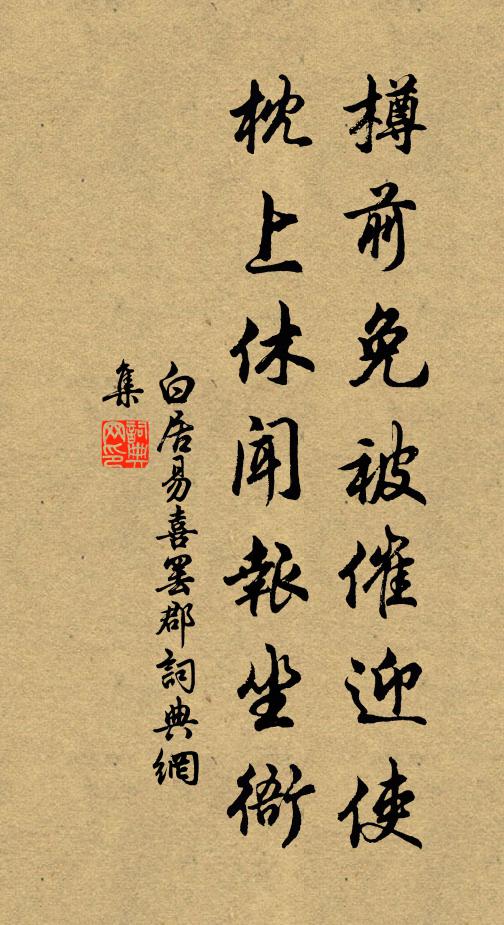 樽前免被催迎使
枕上休聞報坐衙
白居易喜罷郡詞典網
集
詞典網印